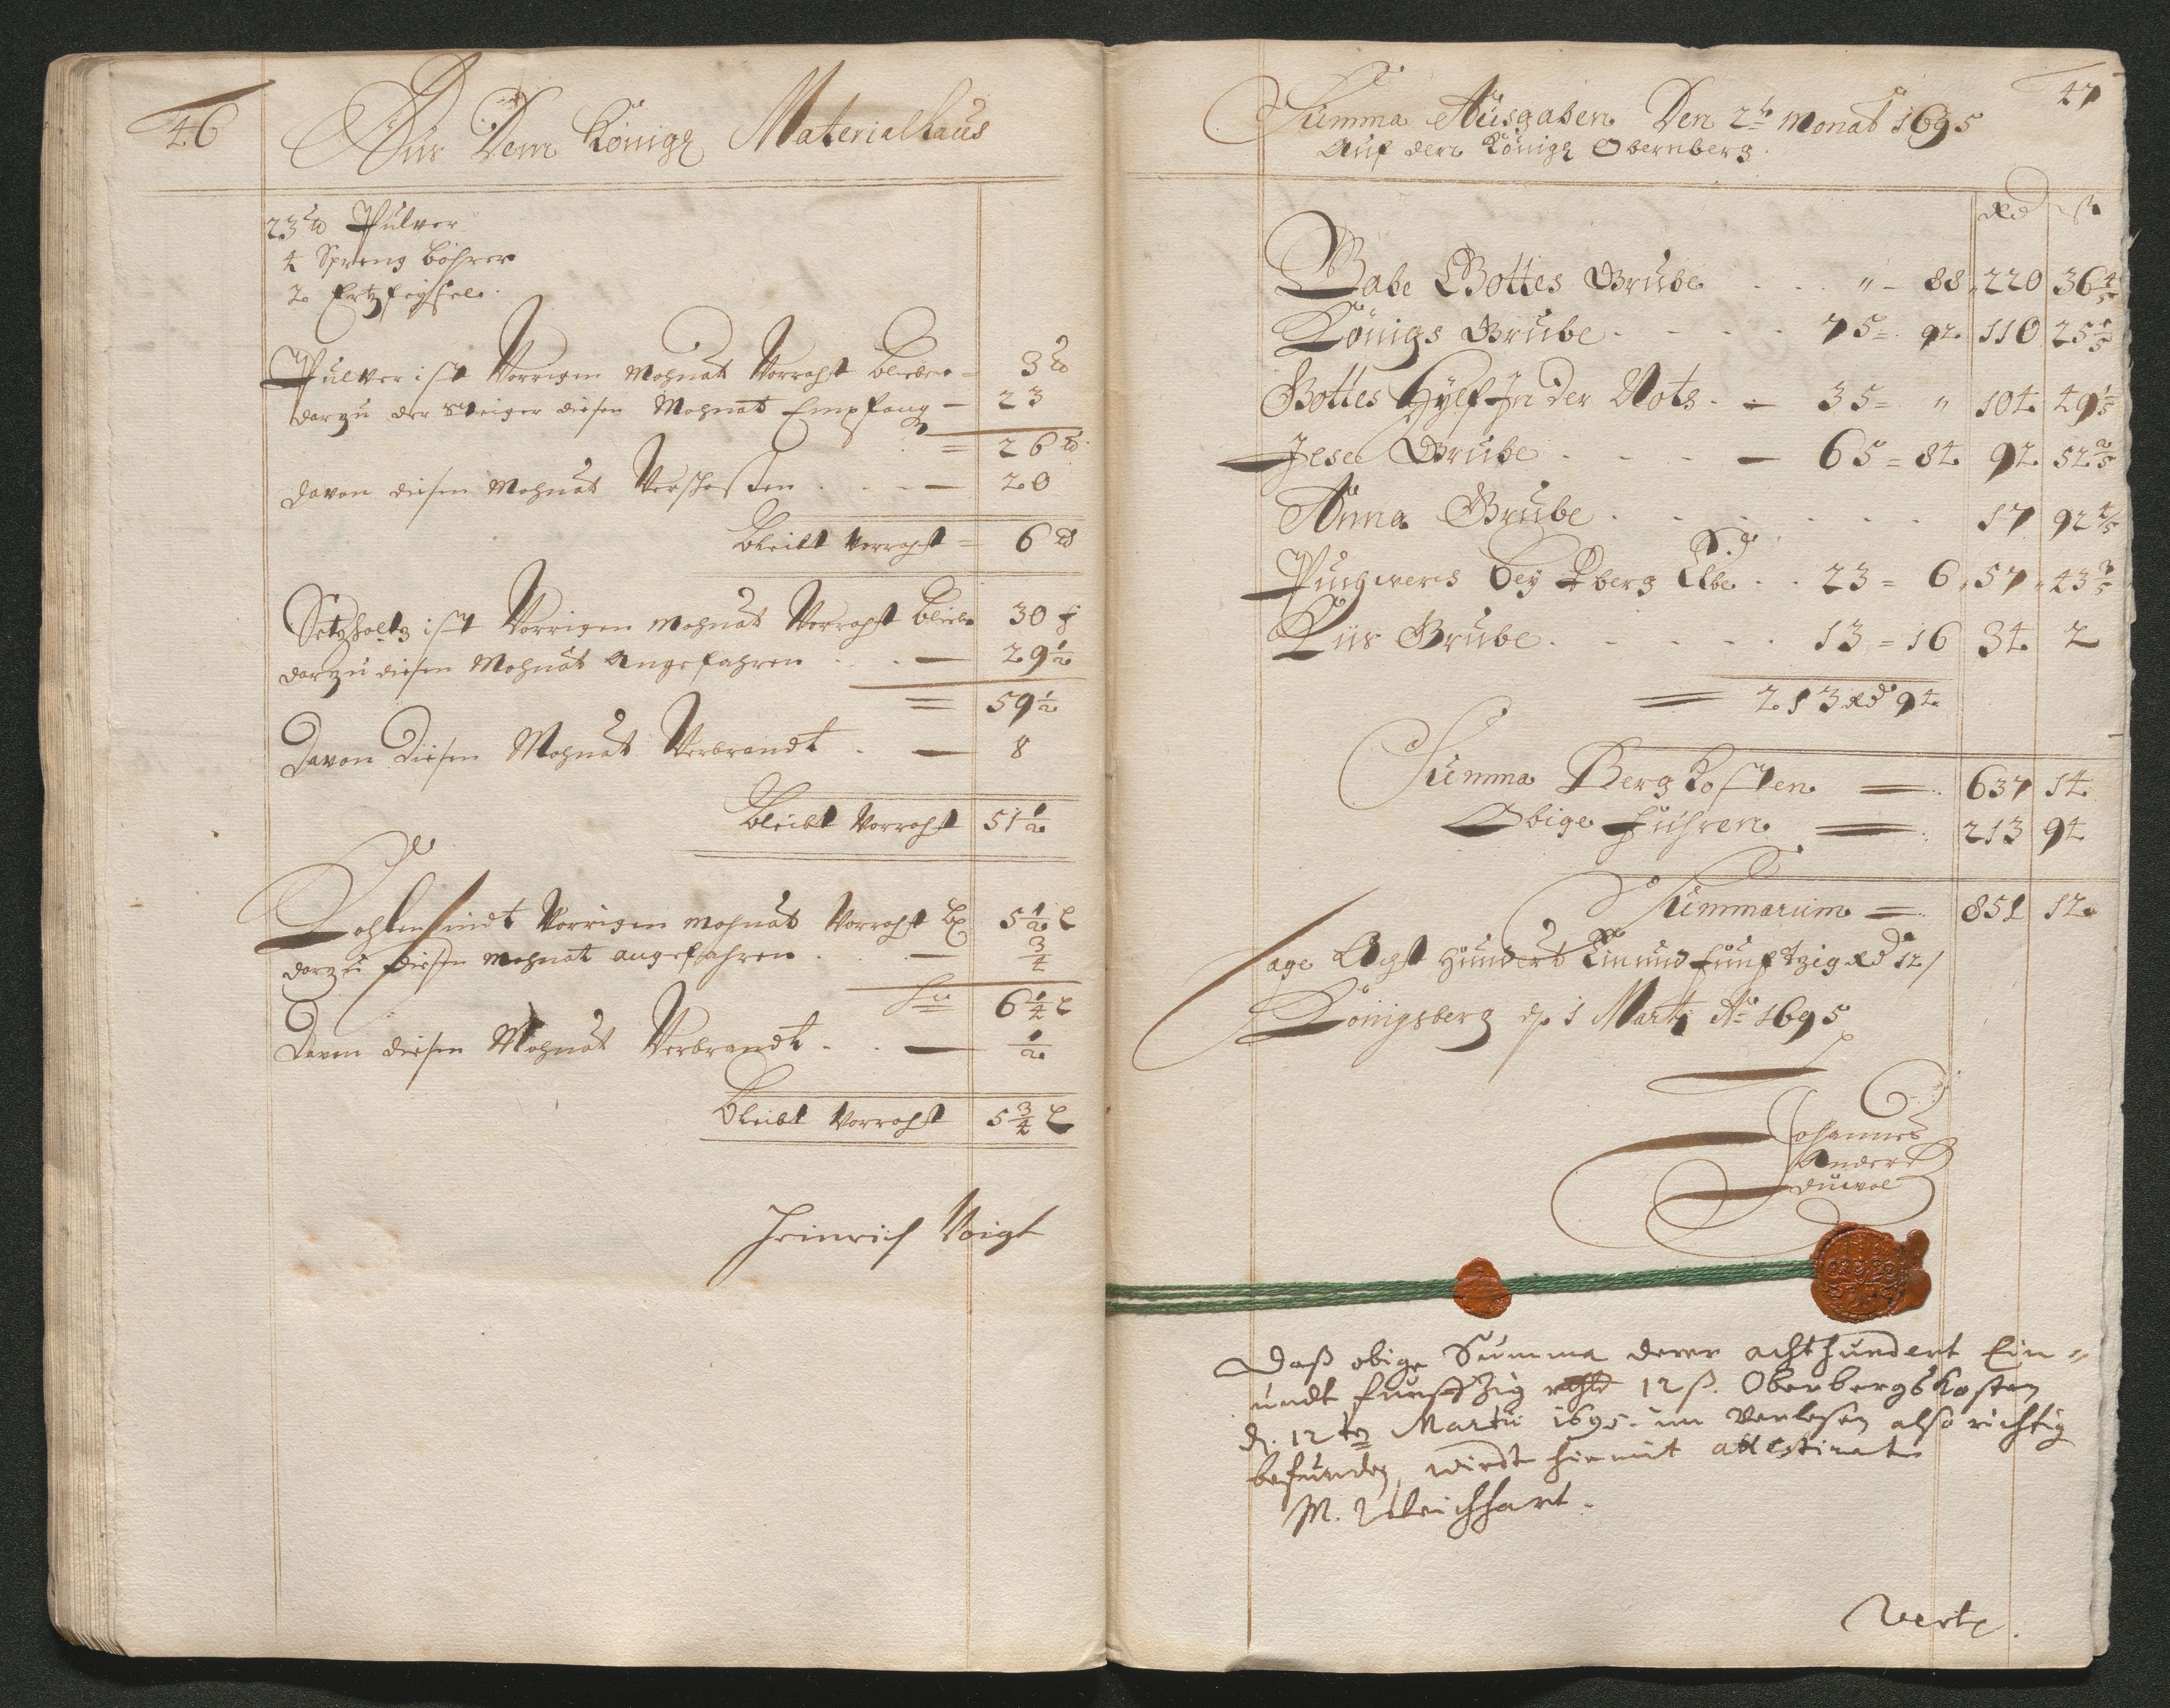 46
Aus Dem Königl Materialhaus
23 ℔ Pulver
4 Spreng bohrer
2 Ertzfeyssel
Pulver ist Vorrigen Mohnat Vorraht blieben = 3 ℔
darzu der Steiger diesen Mohnat Empfang — 23
= 26 ℔
davon diesen Mohnat Verschossen . . . — 20
bleibt Vorraht = 6 ℔
Setzholtz ist Vorrigen Mohnat Vorraht blieben 30 f
darzu diesen Mohnat Angefahren . . . — 29 1/2
= 59 1/2
Davon diesen Mohnat Verbrandt . — 8
bleibt Vorraht 51 1/2
Kohlen sindt Vorrigen Mohnat Vorraht bl 5 1/2 L
darzu diesen Mohnat angefahren . . — 3/4
6 1/4 L
Davon diesen Mohnat Verbrandt . . — 1/2
Bleibt Vorraht 5 3/4 L
Heinrich Voigt
47
Summa Ausgaben Den 2t Monat 1695
Auf dem Königl Obernberg.
Rd ß
Gabe Gottes Grube . . . " - 88 220 36 4/5
Königs Grube . - - - . 75 = 92 110 25 1/5
Gottes Hylf In der Noth . — 35 = " 104 49 1/5
Jese Grube . - - - — 65 = 84 92 52 2/5
Anna Grube . . . . . . . 17 92 4/5
Rd
Puchwerk bey Pberg Elbe . . 23 = 6 57 43 3/5
Kiis Grube . - - - - . 13 = 16 34 2
= 213 Rd 94
Summa Berg Kosten = 637 14
Obige Fuhren = 213 94
Summarum = 851 12
Sage Acht Hundert Ein und Fünftzig Rd 12 /
Königsberg d 1 Marty Ao 1695
Johannes
Anders
Duwal
Daß obige Summa derer achthundert Ein=
undt funffzig rthlr 12 ß. Oberbergs Kosten
d. 12ten Martii 1695. im Verlesen also richtig
befunden, wirdt hiemit attestiret
Verte.